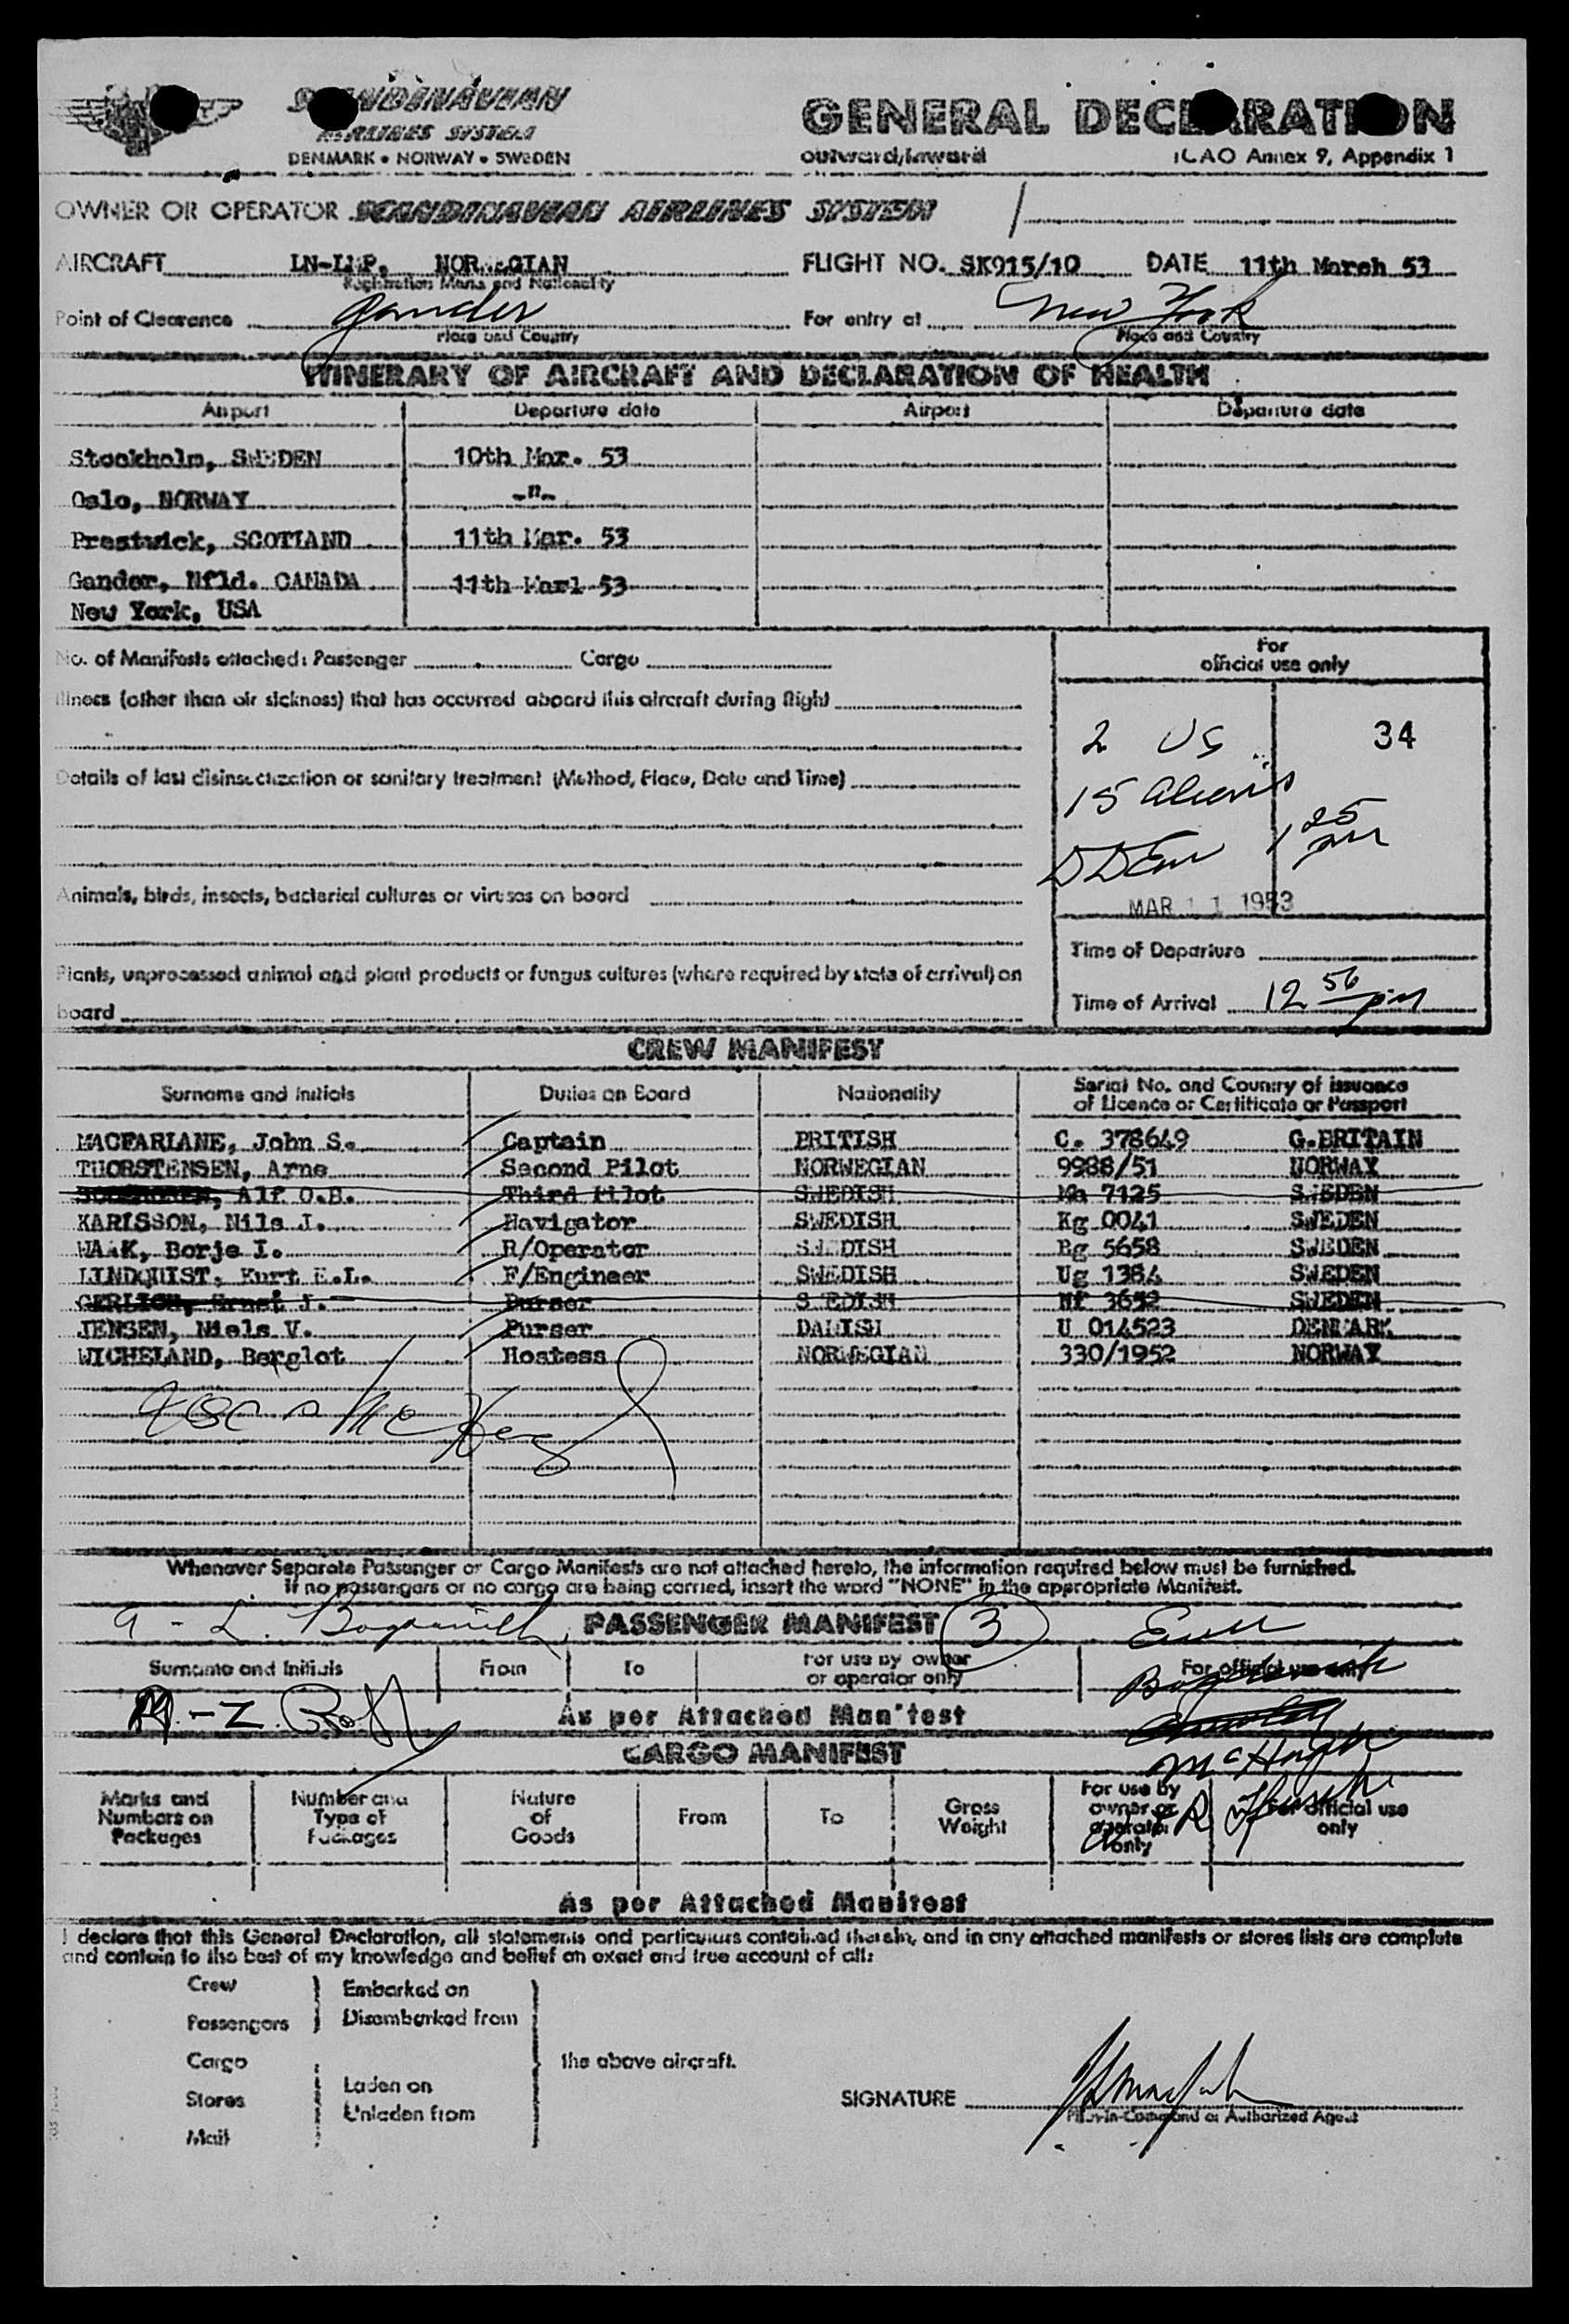 SCANDINAVIAN
AIRLINES SYSTEM
DENMARK • NORWAY • SWEDEN
GENERAL DECLARATION
outward/inward ICAO Annex 9, Appendix 1
OWNER OR OPERATOR SCANDINAVIAN AIRLINES SYSTEM
AIRCRAFT NORWEGIAN FLIGHT NO. SK915/10 DATE 11th March 53
Registration Marks and Nationality
Point of Clearance Gander For entry at New York
Place and Country Place and Country
ITINERARY OF AIRCRAFT AND DECLARATION OF HEALTH
Airport Departure date Airport Departure date
Stockholm, SWEDEN 10th Mar. 53
Oslo, NORWAY -"-
Prestwick, SCOTLAND 11th Mar. 53
Gander, Nfld. CANADA 11th Marl 53
New York, USA
No. of Manifests attached: Passenger Cargo
Illness (other than air sickness) that has occurred aboard this aircraft during flight
Details of last disinsectization or sanitary treatment (Method, Place, Date and Time)
Animals, birds, insects, bacterial cultures or viruses on board
Plants, unprocessed animal and plant products or fungus cultures (where required by state of arrival) on
board
For
official use only
2 US 34
15 aliens
1 25 pm
MAR 11 1953
Time of Departure
Time of Arrival 12 56 pm
CREW MANIFEST
Surname and Initials Duties on Board Nationality Serial No. and Country of issuance
of Licence or Certificate or Passport
MACFARLANE, John S. Captain BRITISH C. 378649 G.BRITAIN
THORSTENSEN, Arne Second Pilot NORWEGIAN 9988/51 NORWAY
Alf O.B. Third Pilot SWEDISH Ma 7125 SWEDEN
KARLSSON, Nils J. Navigator SWEDISH Kg 0041 SWEDEN
WAAK, Borje I. R/Operator SWEDISH Bg 5658 SWEDEN
LINDQUIST, Kurt E.L. F/Engineer SWEDISH Ug 1384 SWEDEN
GERLICH, Ernst J. Purser SWEDISH Mf 3652 SWEDEN
JENSEN, Niels V. Purser DANISH U 014523 DENMARK
WICHELAND, Berglot Hostess NORWEGIAN 330/1952 NORWAY
Whenever Separate Passenger or Cargo Manifests are not attached hereto, the information required below must be furnished.
If no passengers or no cargo are being carried, insert the word "NONE" in the appropriate Manifest.
A - L. PASSENGER MANIFEST 3
Surname and Initials From To For use by owner
or operator only For official use only
M - Z. As per Attached Manifest
CARGO MANIFEST
McHugh
Marks and
Numbers on
Packages
Number and
Type of
Packages
Nature
of
Goods
From To Gross
Weight
For use by
owner or
operator
only
For official use
only
As per Attached Manifest
I declare that this General Declaration, all statements and particulars contained therein, and in any attached manifests or stores lists are complete
and contain to the best of my knowledge and belief an exact and true account of all:
Crew Embarked on
Passengers Disembarked from
Cargo the above aircraft.
Laden on
Stores
Unladen from
Mail
SIGNATURE
Pilot-in-Command or Authorized Agent